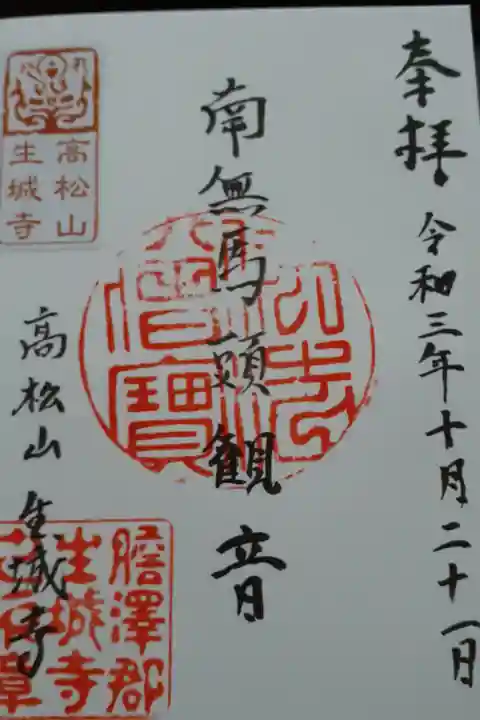 奉拝
令和三年十月二十一日
南無馬頭観音
高松山
生城寺
高松山 生城寺
佛法僧寶
膽澤郡
生城寺